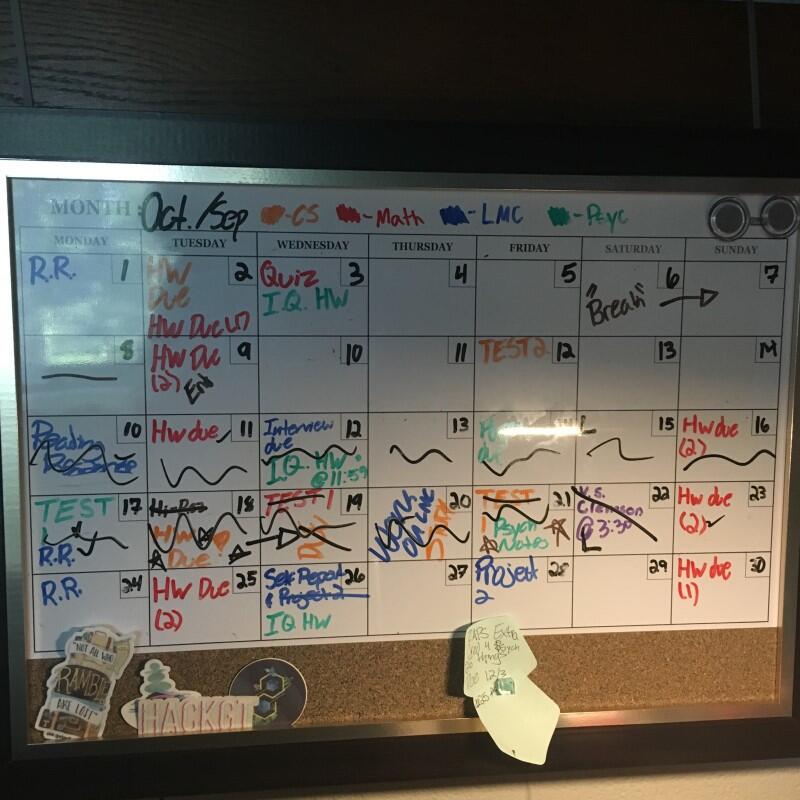 MONTH: Oct./Sep -CS -Math -LMC -Psyc
MONDAY TUESDAY WEDNESDAY THURSDAY FRIDAY SATURDAY SUNDAY
R.R. 1
HW 2
Due
HW Due (1)
Quiz 3
I.Q. HW
4
5
"Break" 6
7
8
HW Due 9
(2)
10
11
TEST 2 12
13
14
Reading 10
Response
Hw due 11
Interview 12
due
I.Q. HW
@11:59
13
14
15
Hw due 16
(2)
TEST 17
R.R.
18
HW
Due
TEST 1 19
20
TEST 21
Psych
Notes
V.s. 22
Clemson
@3:30
Hw due 23
(2)
R.R. 24
HW Due 25
(2)
Self Report 26
& Project 2
IQ HW
27
Project 28
2
29
Hw due 30
(1)
"NOT ALL WHO
RAMBLE
ARE LOST"
HACKGT
Extra
12/3